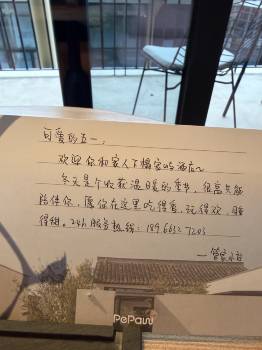 可爱的五一，
欢迎你和家人下榻家的酒店～
冬天是个收获温暖的季节，很高兴能
陪伴你，愿你在这里吃得香，玩得欢，睡
得甜。24h服务热线：189 6652 7203
—管家
PePaw